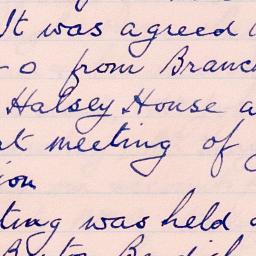 It was agreed
from Branc
Halsey House a
meeting of
ion
ting was held